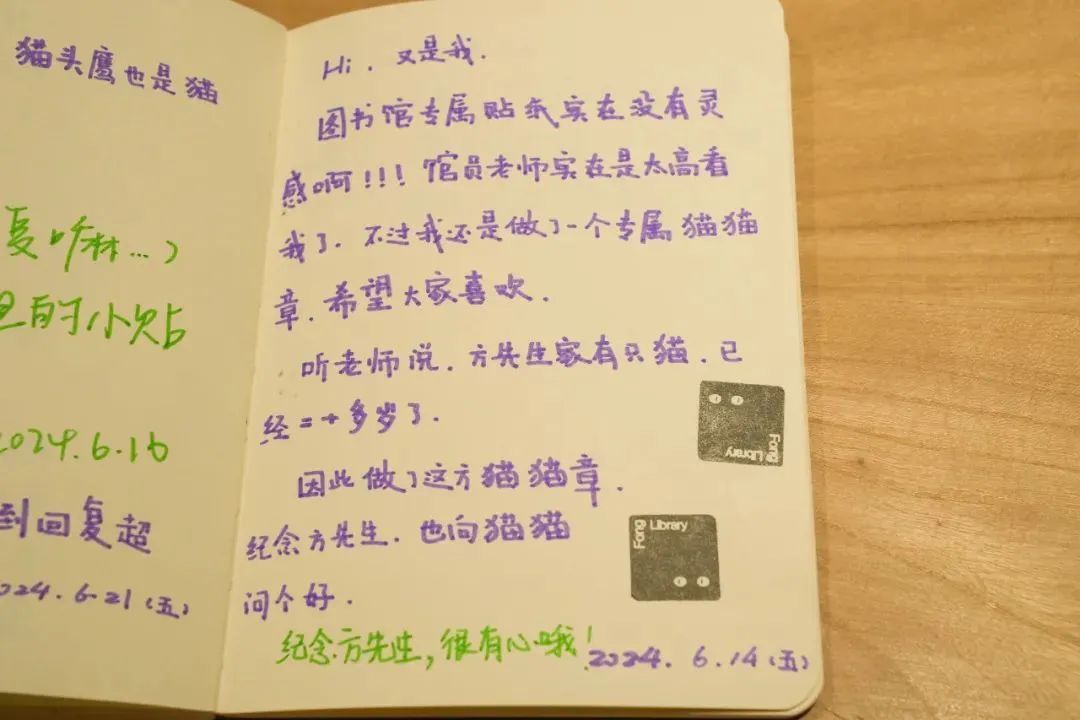 猫头鹰也是猫
复呀林...)
里的小贴
2024.6.16
到回复超
2024.6.21(五)
Hi.又是我.
图书馆专属贴纸实在没有灵
感啊!!!馆员老师实在是太高看
我了.不过我还是做了一个专属猫猫
章.希望大家喜欢.
听老师说.方先生家有只猫.已
经二十多岁了.
因此做了这方猫猫章.
纪念方先生.也向猫猫
问个好.
纪念方先生,很有心哦!
2024.6.14(五)
Fong Library
Fong Library